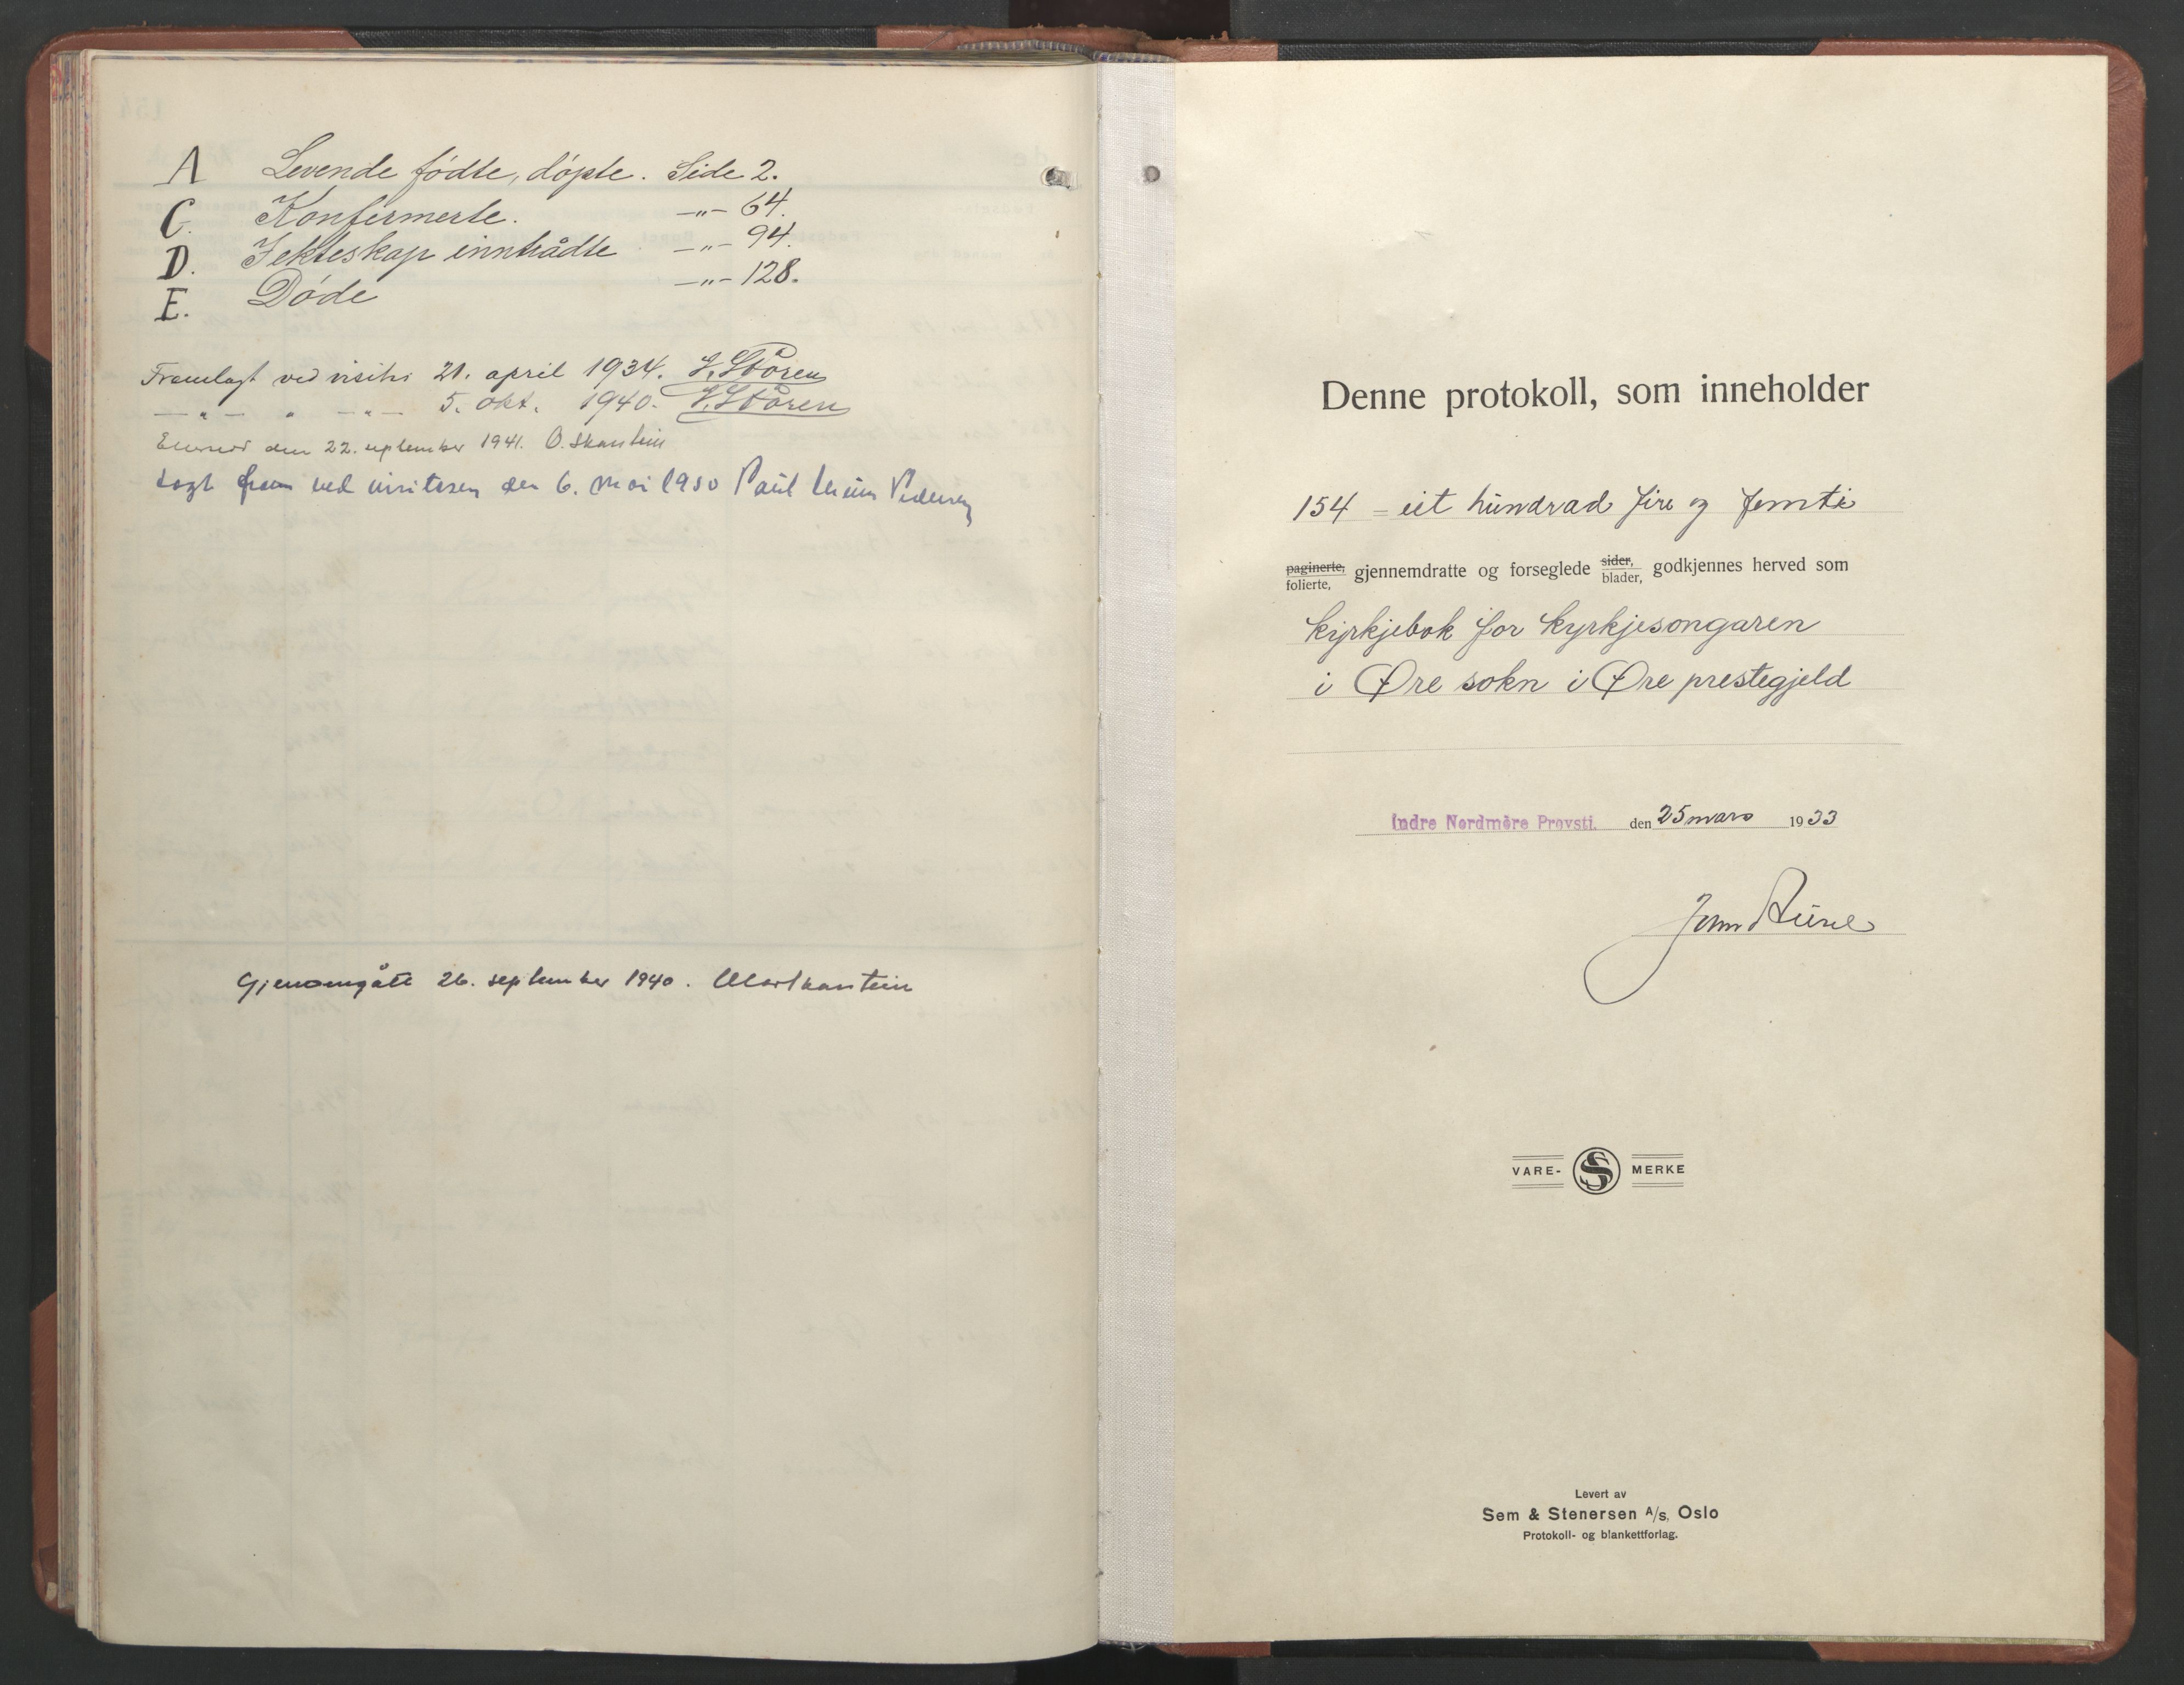 A Levende fødte, døpte. Side 2.
C. Konfermerte. —"— 64.
D. Jekteskap inntrådte —"— 94.
E. Døde —"— 128.
Framlagt ved visitas 21. april 1934. J. Støren
—"— " —"— 5. okt. 1940. J. Støren
den 22. september 1941. O. Skarstein
Lagt fram ved visitasen den 6. mai 1950 Paul Heim Pedersen
Gjenomgått 26. september 1940.
Denne protokoll, som inneholder
154 = eit hundrad fire og femti
paginerte, folierte, gjennemdratte og forseglede sider, blader, godkjennes herved som
kyrkjebok for kyrkjesongaren
i Øre sokn i Øre prestegjeld
Indre Nordmøre Prøvsti. den 25 mars 1933
John Aurel
VARE- S MERKE
Levert av
Sem & Stenersen A/s, Oslo
Protokoll- og blankettforlag.